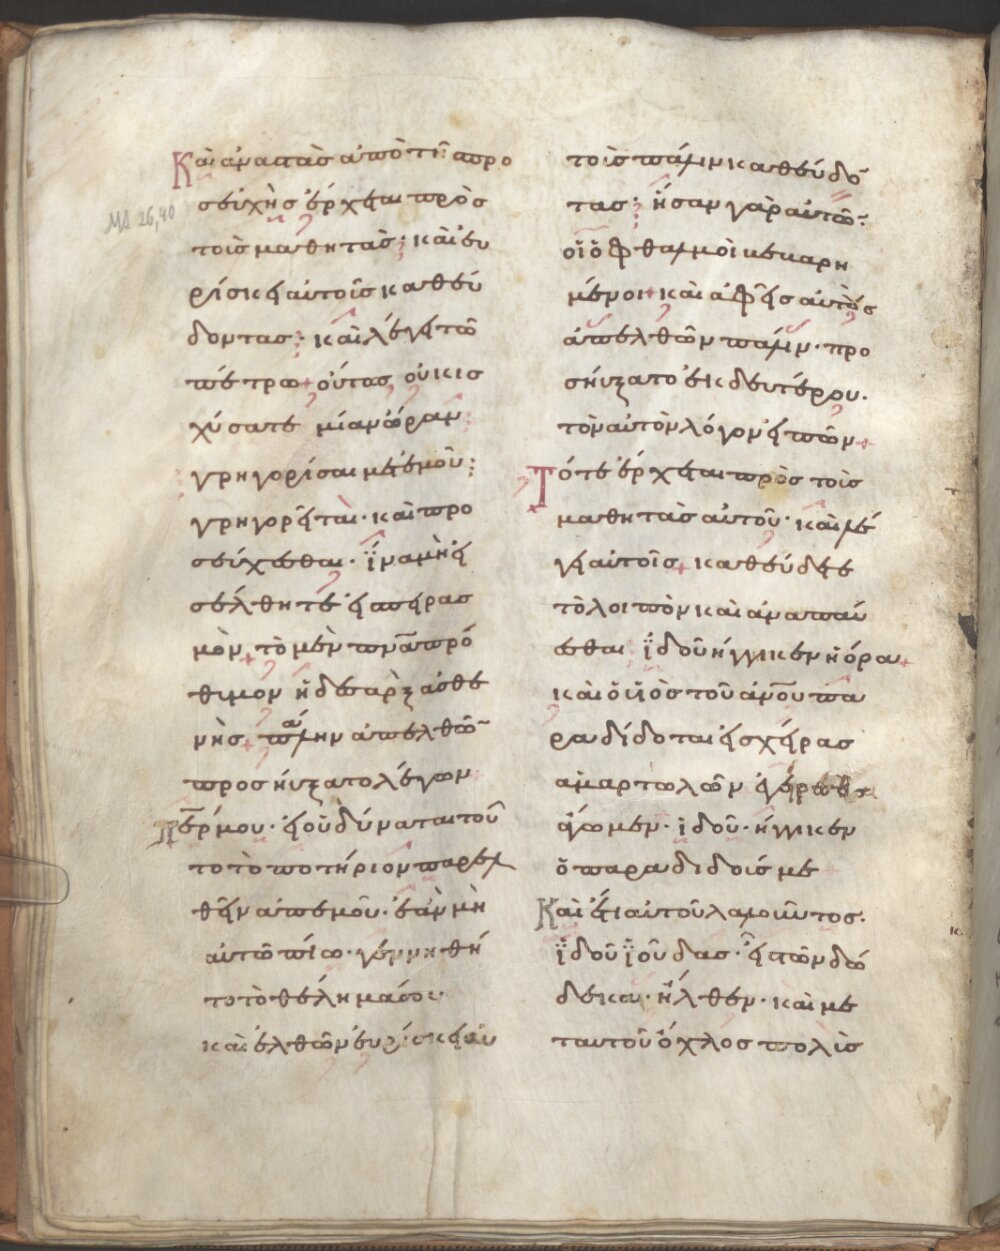 Καὶ ἀναστὰσ ἀπὸ τῆ προ
σευχὴσ ἔρχεται πρὸσ
τοὶσ μαθητὰσ· καὶ ἑυ
ρίσκει αὐτοῖσ καθεύ
δοντασ· καὶ λέγει τῶ
πέτρω οὕτοσ οὐκ ισ
χύσατε μίαν ὥραν
γρηγορίσαι μετ' ἐμοῦ;
γρηγορῆται· καὶ προ
σεύχεσθαι· ἵνα μὴ εἰ
σέλθητε εἰσ περασ
μὸν τὸ μὲν πν̅α πρό
θιμον ἡ δὲ σαρὲξ ἀσθε
νὴσ πάλην ἀπελθῶ
προσηύξατο λέγων
Περ μου· εἰ οὐ δύναται τοῦ
το τὸ ποτήριον παρελ
θεῖν ἀπ' εμοῦ· ἐὰν μὴ
αὐτῶ πίω· γεννηθή
το τὸ θέλημα σου
καὶ ἐλθῶν ἑυρίσκει αὐ
τοὶσ πάλιν καθεύδό
τασ· ἦσαν γὰρ αυτῶ
οἱ ὀφθαλμοὶ κεκαρη
μένοι καὶ ἀφεῖσ αὐτοὺσ
ἀπελθῶν πάλιν· προ
σηύξατο ἐκ δευτέρου·
τὸν αὐτὸν λόγον εἰπῶν
Τότε ἔρχεται πρὸσ τοὶσ
μαθητὰσ αὐτοῦ· καὶ λέ
γει αὐτοῖσ καθεύδετε
τὸ λοιπὸν καὶ ἀναπαύ
εσθαι ἰδοῦ ἤγγικεν ἡ όρα
καὶ ὁ ὑιὸσ τοῦ ἀν̅ου πα
ραδίδοται εἰσ χεῖρασ
αμαρτολῶν ἐγείρεσθε
ἄγωμεν· ἰδοῦ· ἤγγικεν
ὁ παραδιδοίσ με
Καὶ ἔτι αὐτοῦ λαλοιῦντοσ·
ἰδοῦ ἰοῦδασ· εἷσ τῶν δώ
δεκα· ἦλθεν· καὶ με
τ αυτοῦ ὄχλοσ πολὶσ
Mt 26,40